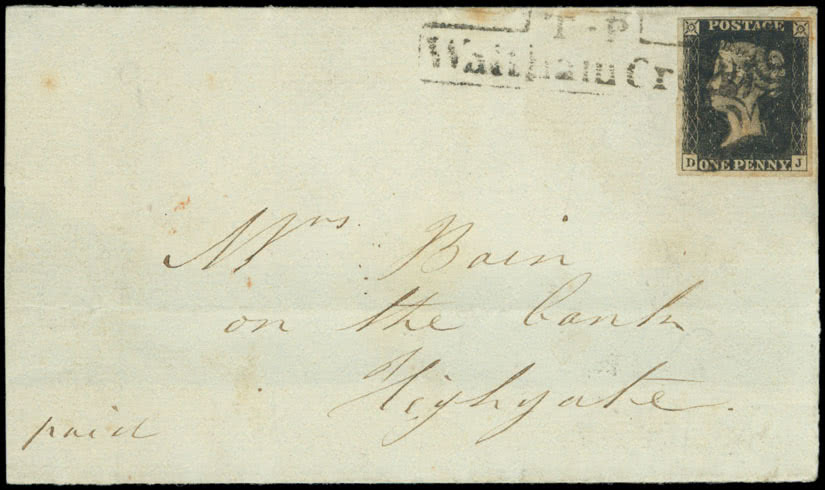 T.P
Waltham Cro
POSTAGE
D ONE PENNY J
Mrs. Bain
on the bank
Highgate.
paid